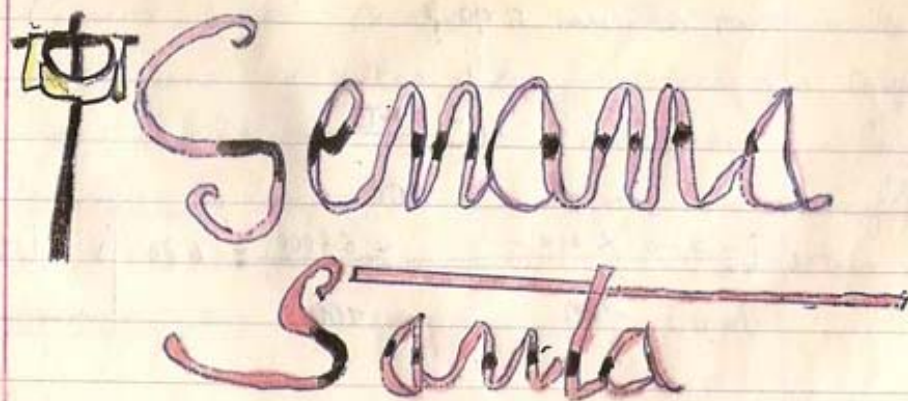 Semana
Santa